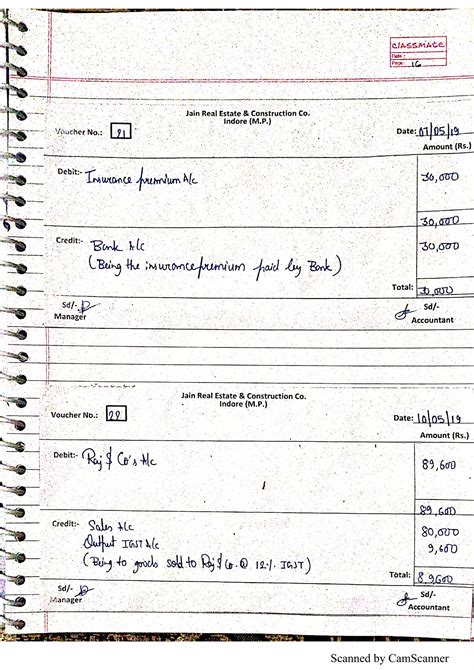 classmate
Date :
Page : 16
Jain Real Estate & Construction Co.
Indore (M.P.)
Voucher No.: 21
Date: 07/05/19
Amount (Rs.)
Debit:- Insurance premium A/c 30,000
30,000
Credit:- Bank A/c 30,000
(Being the insurance premium paid by Bank)
Total: 30,000
Sd/-
Manager
Sd/-
Accountant
Jain Real Estate & Construction Co.
Indore (M.P.)
Voucher No.: 22
Date: 10/05/19
Amount (Rs.)
Debit:- Raj & Co's A/c 89,600
89,600
Credit:- Sales A/c 80,000
Output IGST A/c 9,600
(Being to goods sold to Raj & Co. @ 12% IGST)
Total: 8,9600
Sd/-
Manager
Sd/-
Accountant
Scanned by CamScanner